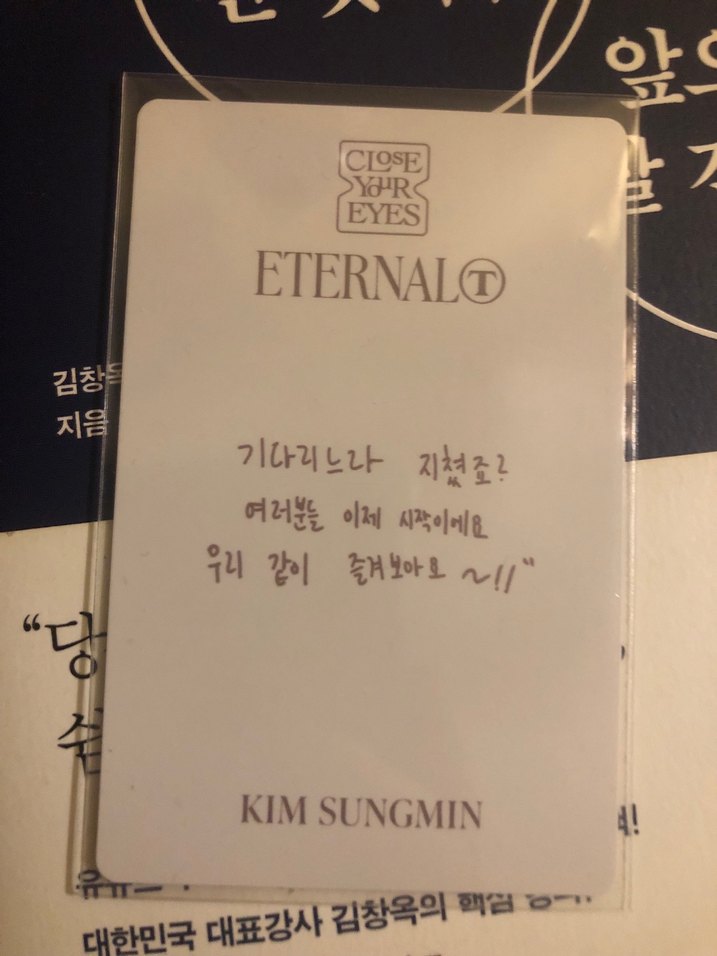 CLOSE
YOUR
EYES
ETERNALⓉ
기다리느라 지쳤죠?
여러분들 이제 시작이에요
우리 같이 즐겨보아요 ~!!"
KIM SUNGMIN
김창옥
지음
대한민국 대표강사 김창옥의 핵심